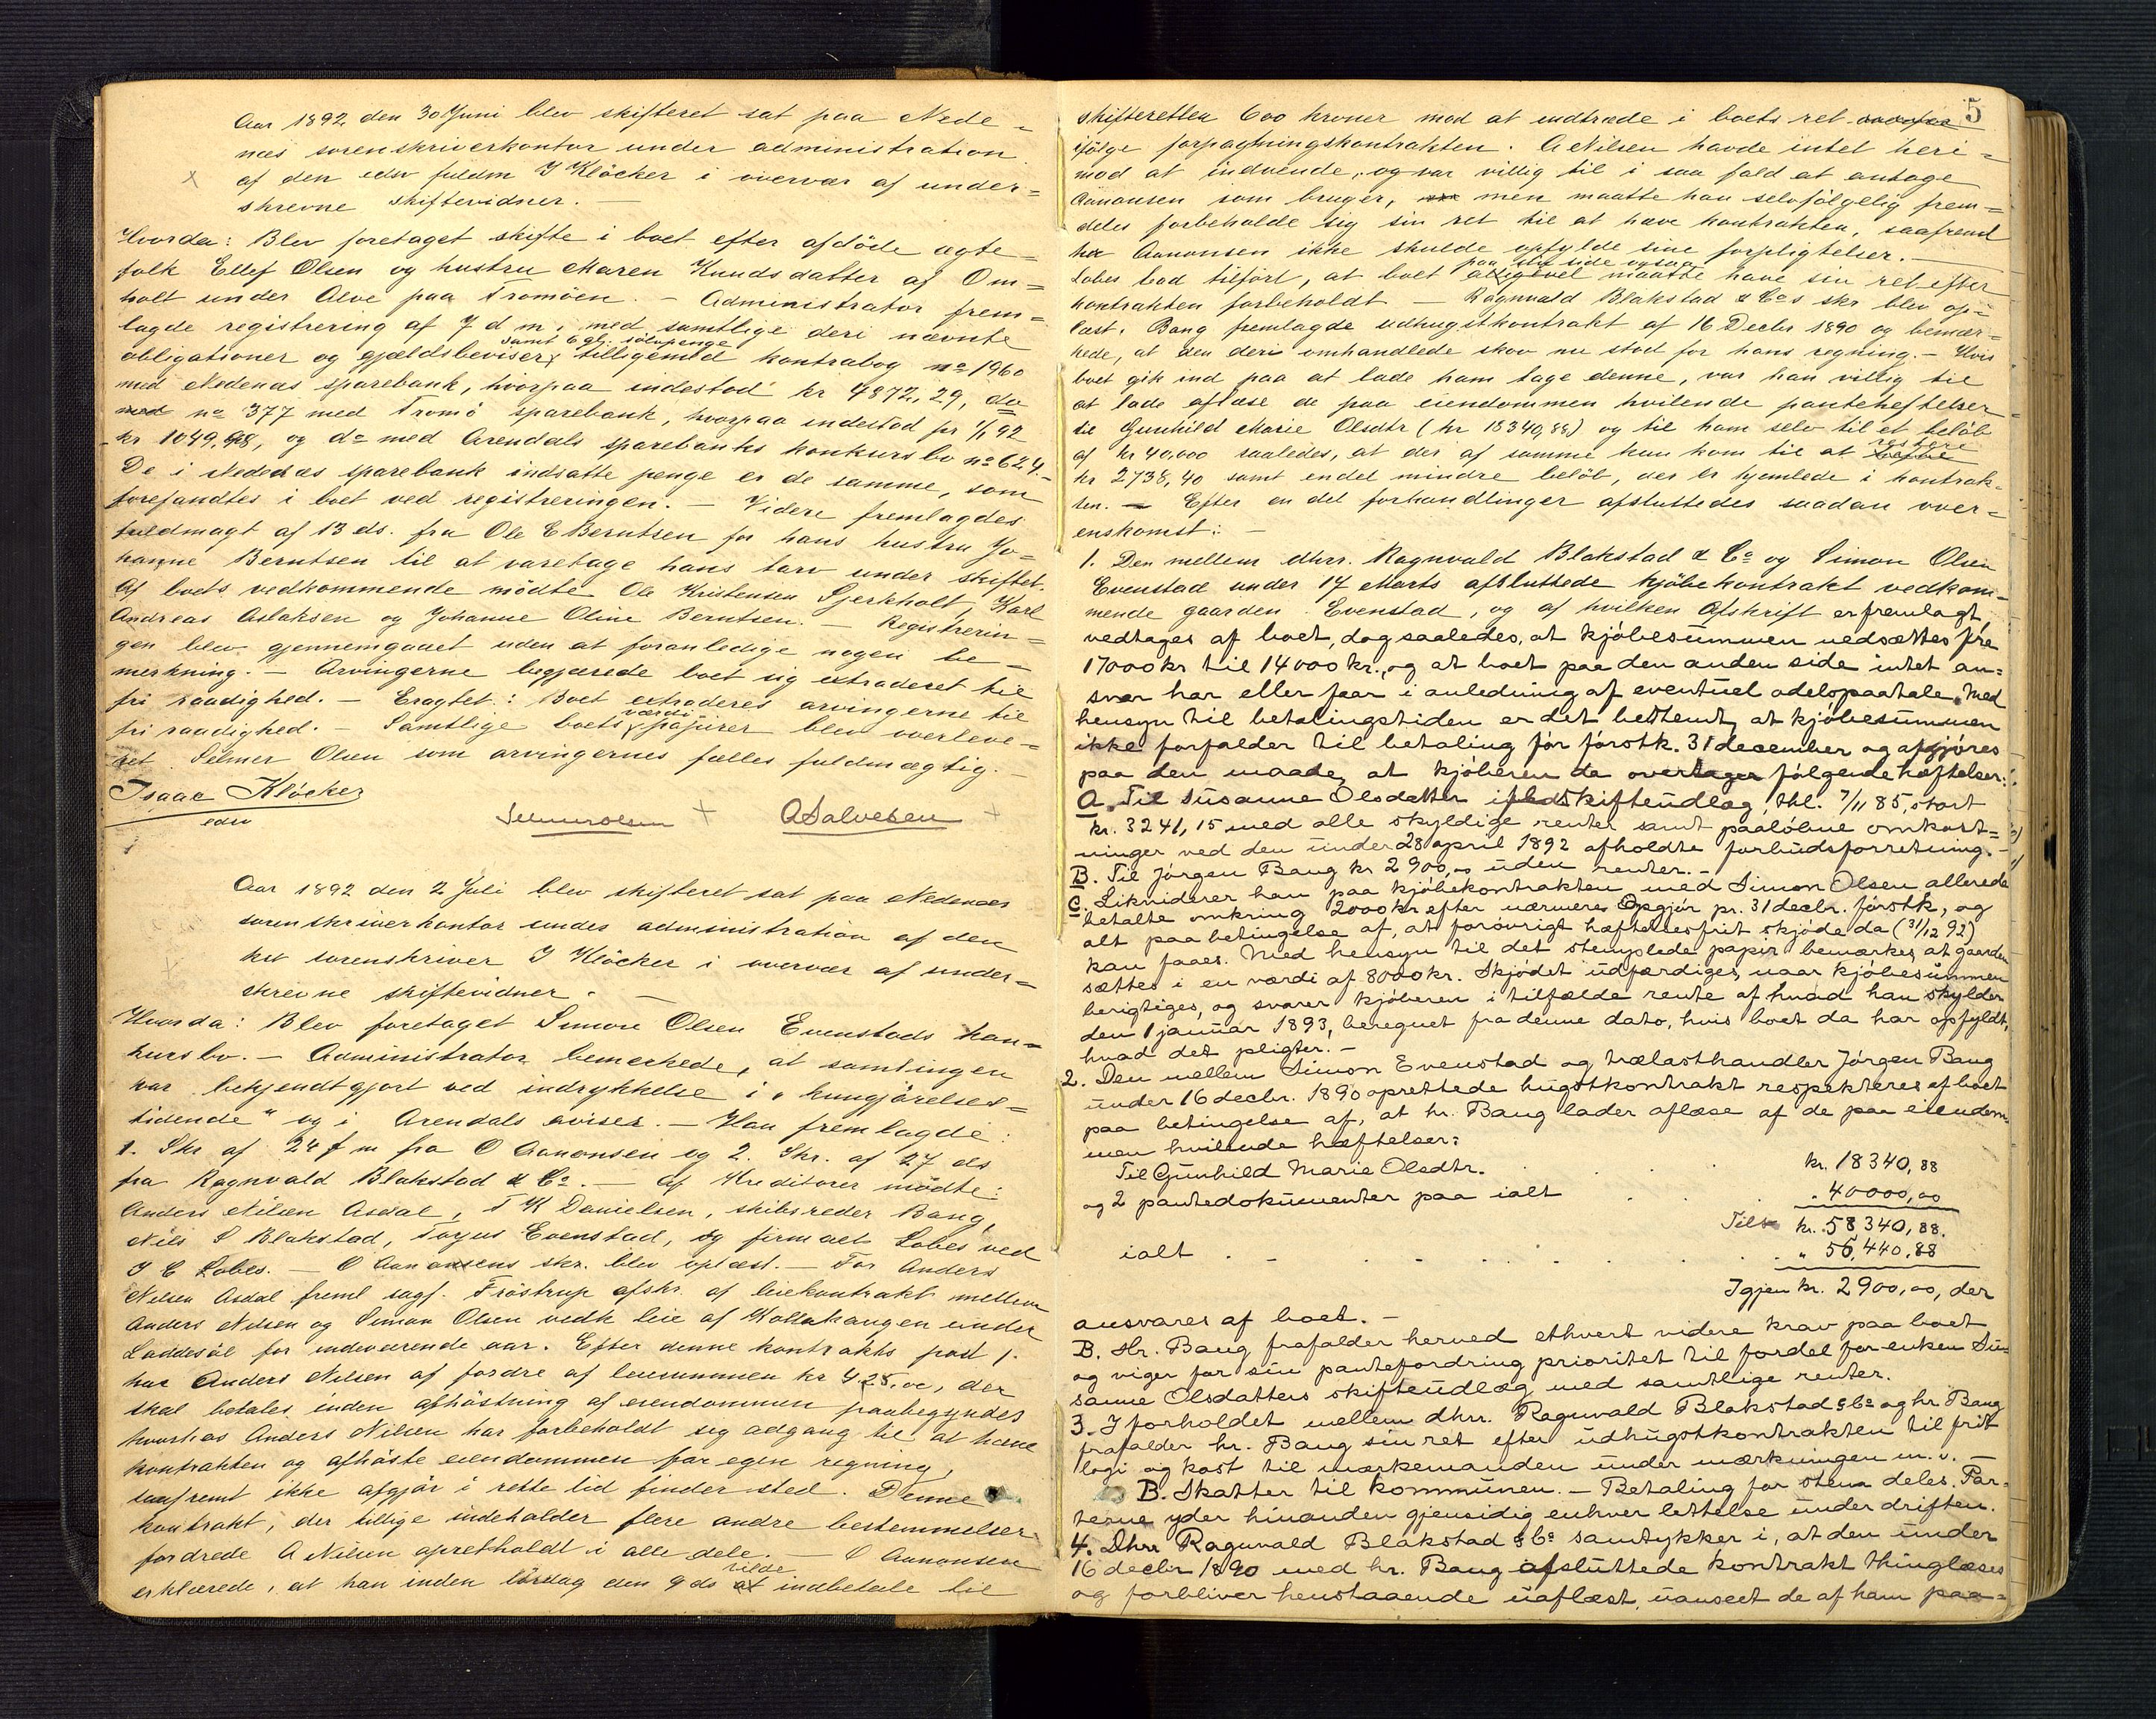 Aar 1892 den 30 Juni blev skifteret sat paa Nede-
næs sorenskriverkontor under administration
af den edsv fuldm I Kløcker i overvær af under-
skrevne skiftevidner. —
Hvorda: Blev foretaget skifte i boet efter afdöde ægte-
folk Ellef Olsen og hustru Maren Knudsdatter af Om-
holt under Alve paa Tromöen. — Administrator frem-
lagde registrering af 7 d m, med samtlige deri nævnte
samt 6 gl. sölvpenge
obligationer og gjældsbeviser, tilligemed kontrabog no 1960
med Nedenæs sparebank, hvorpaa indestod kr 4872,29, do
med no 377 med Tromö sparebank, hvorpaa indestod pr 1/1 92
kr 1049,98, og do med Arendals sparebanks konkursbo no 624.
De i Nedenæs sparebank indsatte penge er de samme, som
forefandtes i boet ved registreringen. — Videre fremlagdes
fuldmagt af 13 ds. fra Ole E Berntsen for hans hustru Jo-
hanne Berntsen til at varetage hans tarv under skiftet.
Af boets vedkommende mödte Ole Kristensen Sjerkholt, Karl
Andreas Aslaksen og Johanne Oline Berntsen. — Registrerin-
gen blev gjennemgaaet uden at foranledige nogen be-
merkning. — Arvingerne begjærede boet sig extraderet til
fri raadighed. — Eragtet: Boet extraderes arvingerne til
værdi
fri raadighed. — Samtlige boets papirer blev overleve-
ret Selmer Olsen som arvingernes fælles fuldmægtig. —
Isaac Kløcker
edsv
Selmer Olsen A Salvesen
Aar 1892 den 2 Juli blev skifteret sat paa Nedenæs
sorenskriverkontor under administration af den
kst sorenskriver I Kløcker i overvær af under-
skrevne skiftevidner. —
Hvorda: Blev foretaget Simon Olsen Evenstads kon-
kursbo. — Administrator bemerkede, at samlingen
var bekjendtgjort ved indrykkelse i "kungjörelses-
tidende" og i Arendals aviser. — Han fremlagde:
1. Skr af 24 f m fra O Aanonsen og 2. Skr. af 27 ds
fra Ragnvald Blakstad & Co. — Af Kreditorer mödte:
Anders Nilsen Asdal, T K Danielsen, skibsreder Bang,
Nils S Blakstad, Torjus Evenstad, og firmaet Lobes ved
I C Lobes. — O Aanonsens skr. blev oplæst. — For Anders
Nilsen Asdal freml sagf. Fröstrup afskr. af leiekontrakt mellem
Anders Nilsen og Simon Olsen vedk leie af under
Löddesöl for indeværende aar. Efter denne kontrakts post 1.
har Anders Nilsen at fordre af leiesummen kr 425,00, der
skal betales inden afhöstning af eiendommen paabegyndes
hvorhos Anders Nilsen har forbeholdt sig adgang til at hæve
kontrakten og afhöste eiendommen for egen regning,
saafremt ikke afgjör i rette tid finder sted. Denne
kontrakt, der tillige indeholder flere andre bestemmelser
fordrede A Nilsen opretholdt i alle dele. — O Aanonsen
vilde
erklærede, at han inden lördag den 9 ds at indbetale til
5
skifteretten 600 kroner mod at indtræde i boets ret
ifölge forpagtningskontrakten. A Nilsen havde intet heri-
mod at indvende, og var villig til i saa fald at antage
Aanonsen som bruger, men maatte han selvfölgelig frem-
deles forbeholde sig sin ret til at hæve kontrakten, saafremt
hr Aanonsen ikke skulde opfylde sine forpligtelser. —
paa sin side ogsaa
Lobes bad tilfört, at boet alligevel maatte have sin ret efter
kontrakten forbeholdt — Ragnvald Blakstad & Cos skr blev op-
læst. Bang fremlagde udhugstkontrakt af 16 Decbr 1890 og bemær-
kede, at den deri omhandlede skov nu stod for hans regning. — Hvis
boet gik ind paa at lade ham tage denne, var han villig til
at lade aflæse de paa eiendommen hvilende panteheftelser
til Gunhild Marie Olsdtr (kr 18340,88) og til ham selv til et belöb
restere
af kr 40.000 saaledes, at der af samme kun kom til at
kr 2738,40 samt endel mindre belöb, der er hjemlede i kontrak-
ten. — Efter en del forhandlinger afsluttedes saadan over-
enskomst: —
1. Den mellem dhrr. Ragnvald Blakstad & Co og Simon Olsen
Evenstad under 17 Marts afsluttede kjöbekontrakt vedkom-
mende gaarden Evenstad, og af hvilken Afskrift er fremlagt,
vedtages af boet, dog saaledes, at kjöbesummen nedsættes fra
17000 kr til 14000 kr., og at boet paa den anden side intet an-
svar har eller faar i anledning af eventuel odelspaatale. Med
hensyn til betalingstiden er det bestemt, at kjöbesummen
ikke forfalder til betaling för förstk. 31 december og afgjöres
paa den maade, at kjöberen da overtager fölgende hæftelser:
A. Til Susanne Olsdatter skifteudlæg, thl. 7/11 85, stort
kr. 3241,15 med alle skyldige renter samt paalöbne omkost-
ninger ved den under 28 april 1892 afholdte forbudsforretning. —
B. Til Jörgen Bang kr 2900,00 uden renter. —
C. Likviderer han paa kjöbekontrakten med Simon Olsen allerede
betalte omkring 2000 kr efter nærmere Opgjör pr. 31 decbr. förstk, og
alt paa betingelse af, at forövrigt hæftelsesfrit skjöde da (31/12 92)
kan faaes. Med hensyn til det stemplede papir bemærkes, at gaarden
sættes i en værdi af 8000 kr. Skjödet udfærdiges, naar kjöbesummen
berigtiges, og svarer kjöberen i tilfælde rente af hvad han skylder
den 1 januar 1893, beregnet fra denne dato, hvis boet da har opfyldt,
hvad det pligter. —
2. Den mellem Simon Evenstad og trælasthandler Jörgen Bang
under 16 decbr. 1890 oprettede hugstkontrakt respekteres af boet
paa betingelse af, at hr. Bang lader aflæse af de paa eiendom-
men hvilende hæftelser:
Til Gunhild Marie Olsdtr. kr. 18340,88
og 2 pantedokumenter paa ialt " 40000,00
Tils kr. 58340,88.
ialt " 56,440,88
Igjen kr. 2900,00, der
ansvares af boet. —
B. Hr. Bang frafalder herved ethvert videre krav paa boet
og viger for sin pantefordring prioritet til fordel for enken Su-
sanne Olsdatters skifteudlæg med samtlige renter.
3. I forholdet mellem dhrr. Ragnvald Blakstad & Co og hr Bang
frafalder hr. Bang sin ret efter udhugstkontrakten til frit
logi og kost til mærkemanden under mærkningen m.v. —
B. Skatter til kommunen. — Betaling for deles. Par-
terne yder hinanden gjensidig enhver lettelse under driften.
4. Dhrr Ragnvald Blakstad & Co samtykker i, at den under
16 decbr 1890 med hr. Bang afsluttede kontrakt thinglæses
og forbliver henstaaende uaflæst, uanseet de af ham paa-